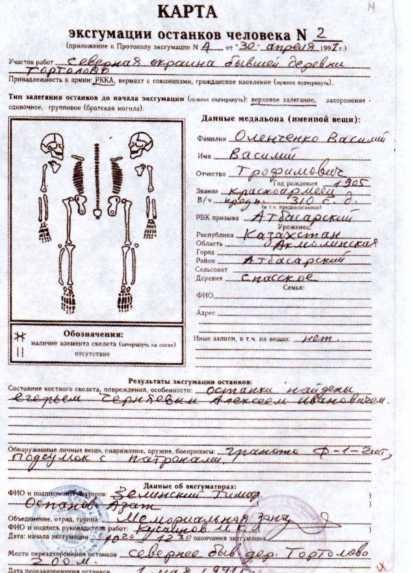 КАРТА
эксгумации останков человека N 2
(приложение к Протоколу эксгумации N 4 от "30" апреля 1991г.)
Участок работ северная окраина бывшей деревни
Тортолово
Принадлежность к армии: РККА, вермахт с союзниками, гражданское население (нужное подчеркнуть).
Тип залегания останков до начала эксгумации (нужное подчеркнуть): верховое залегание, захоронение -
одиночное, групповое (братская могила).
Данные медальона (именной вещи):
Фамилия Оленченко Василий
Имя Василий
Отчество Трофимович
Год рождения 1905
Звание красноармеец
В/ч 310 с.д.
(в т.ч. предположительно)
РВК призыва Атбасарский
Уроженец:
Республика Казахстан
Область Акмолинская
Город
Район Атбасарский
Сельсовет
Деревня Спасское
Семья:
ФИО
Адрес
Иные записи, в т.ч. на вещах: нет.
Обозначения:
наличие элемента скелета (заштриховать на схеме)
отсутствие
Результаты эксгумации останков:
Состояние костного скелета, повреждения, особенности: останки найдены
егерьем Алексеем Ивановичем.
Обнаруженные личные вещи, снаряжение, оружие, боеприпасы: граната Ф-1-2шт,
подсумок с патронами.
Данные об эксгуматорах:
ФИО и подписи эксгуматоров: Земинский Тимур
Оспанов Азат
Объединение, отряд, группа Мемориальная зона
ФИО и подпись руководителя работ: Кусаинов М.К.
Дата: начала эксгумации окончания эксгумации
Место перезахоронения останков севернее быв. дер. Тортолово
200 м.
Дата перезахоронения останков 1 мая 1991г.